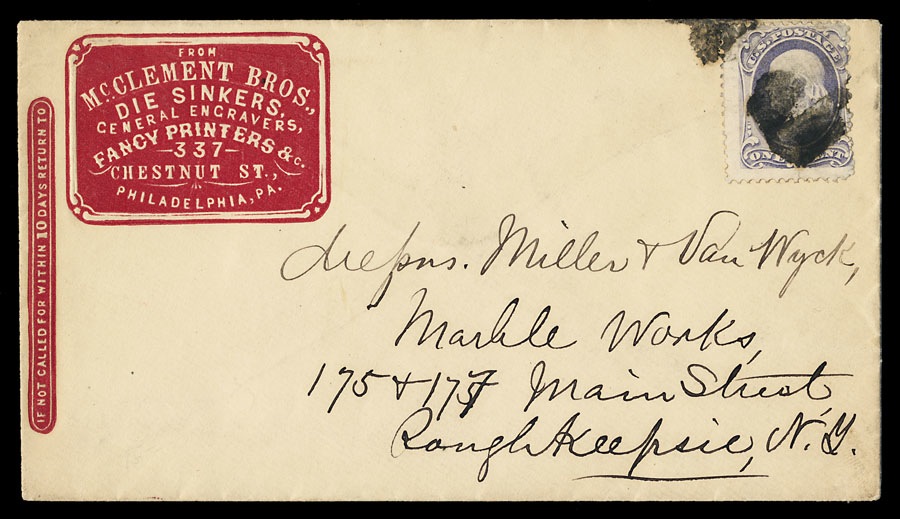 FROM
McCLEMENT BROS.,
DIE SINKERS,
GENERAL ENGRAVERS,
FANCY PRINTERS &c.
-337-
CHESTNUT ST.,
PHILADELPHIA, PA.
IF NOT CALLED FOR WITHIN 10 DAYS RETURN TO
U.S. POSTAGE
ONE CENT
Messrs. Miller & Van Wyck,
Marble Works,
175 & 177 Main Street,
Poughkeepsie, N.Y.